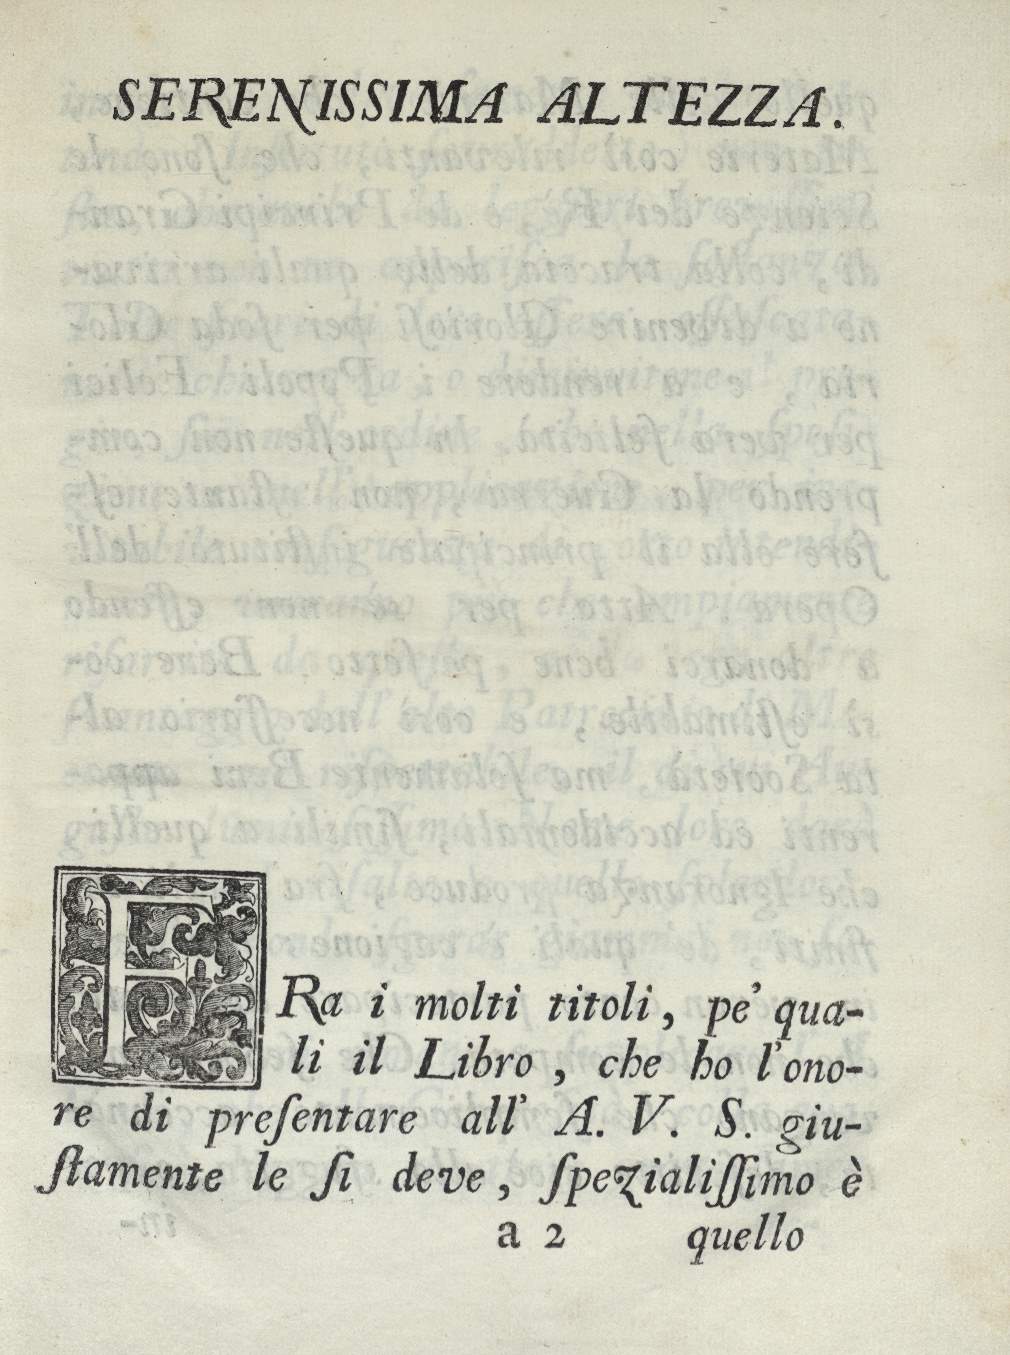 SERENISSIMA ALTEZZA.
FRa i molti titoli, pe' qua-
li il Libro, che ho l'ono-
re di preſentare all' A. V. S. giu-
ſtamente le ſi deve, ſpezialiſſimo è
a 2 quello